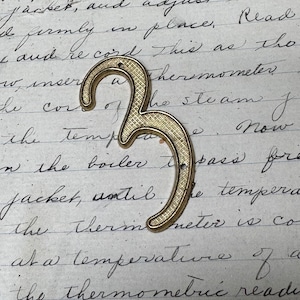 jacket, and adjus
d firmly in place. Read
and record this as tho
w, insert a thermometer
the cor of the steam j
the tempe s. Now
n the boiler to pass fre
jacket, until the tempera
the thermometer is co
at a temperature of a
the thermometric readi
3